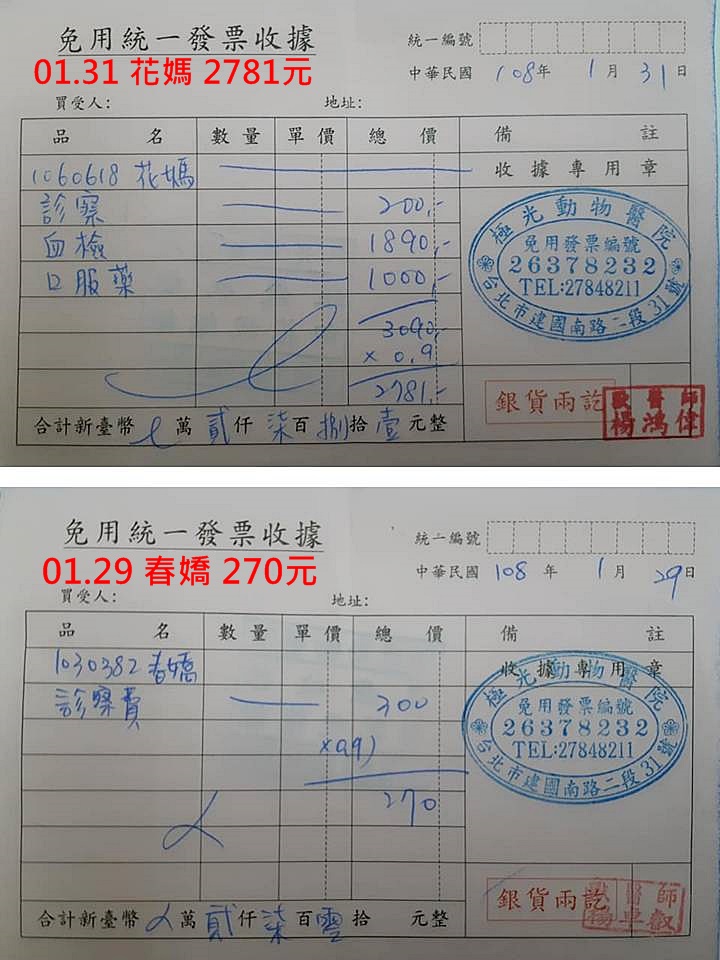 免用統一發票收據
統一編號
01.31 花媽 2781元
中華民國 108年 1月 31日
買受人： 地址：
品名 數量 單價 總價 備註
1060618 花媽 收據專用章
診察 200,-
血檢 1890,-
口服藥 1000,-
極光動物醫院
免用發票編號
26378232
TEL:27848211
台北市建國南路二段31號
3090,-
x 0.9
2781,-
銀貨兩訖
獸醫師
楊鴻偉
合計新臺幣 萬貳仟柒百捌拾壹元整
免用統一發票收據
統一編號
01.29 春嬌 270元
中華民國 108年 1月 29日
買受人： 地址：
品名 數量 單價 總價 備註
1030382 春嬌 收據專用章
診察費 300
極光動物醫院
免用發票編號
26378232
TEL:27848211
台北市建國南路二段31號
x0.9)
270
銀貨兩訖
獸醫師
楊卓叡
合計新臺幣 萬貳仟柒百零拾 元整